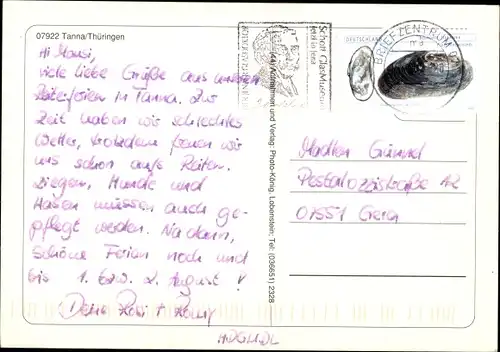 07922 Tanna/Thüringen
Hi Mausi,
viele liebe Grüße aus unseren
Reiterferien in Tanna. Zur
Zeit haben wir schlechtes
Wetter, trotzdem freuen wir
uns schon aufs Reiten.
Ziegen, Hunde und
Hasen müssen auch ge-
pflegt werden. Na dann,
schöne Ferien noch und
bis 1. bzw. 2. August!
Deine
HDGMDL
Schott GlasMuseum
jetzt in Jena
Aufnahmen und Verlag: Photo-König, Lobenstein; Tel: (036651) 2328
DEUTSCHLAND
BRIEFZENTRUM
07551 Gera